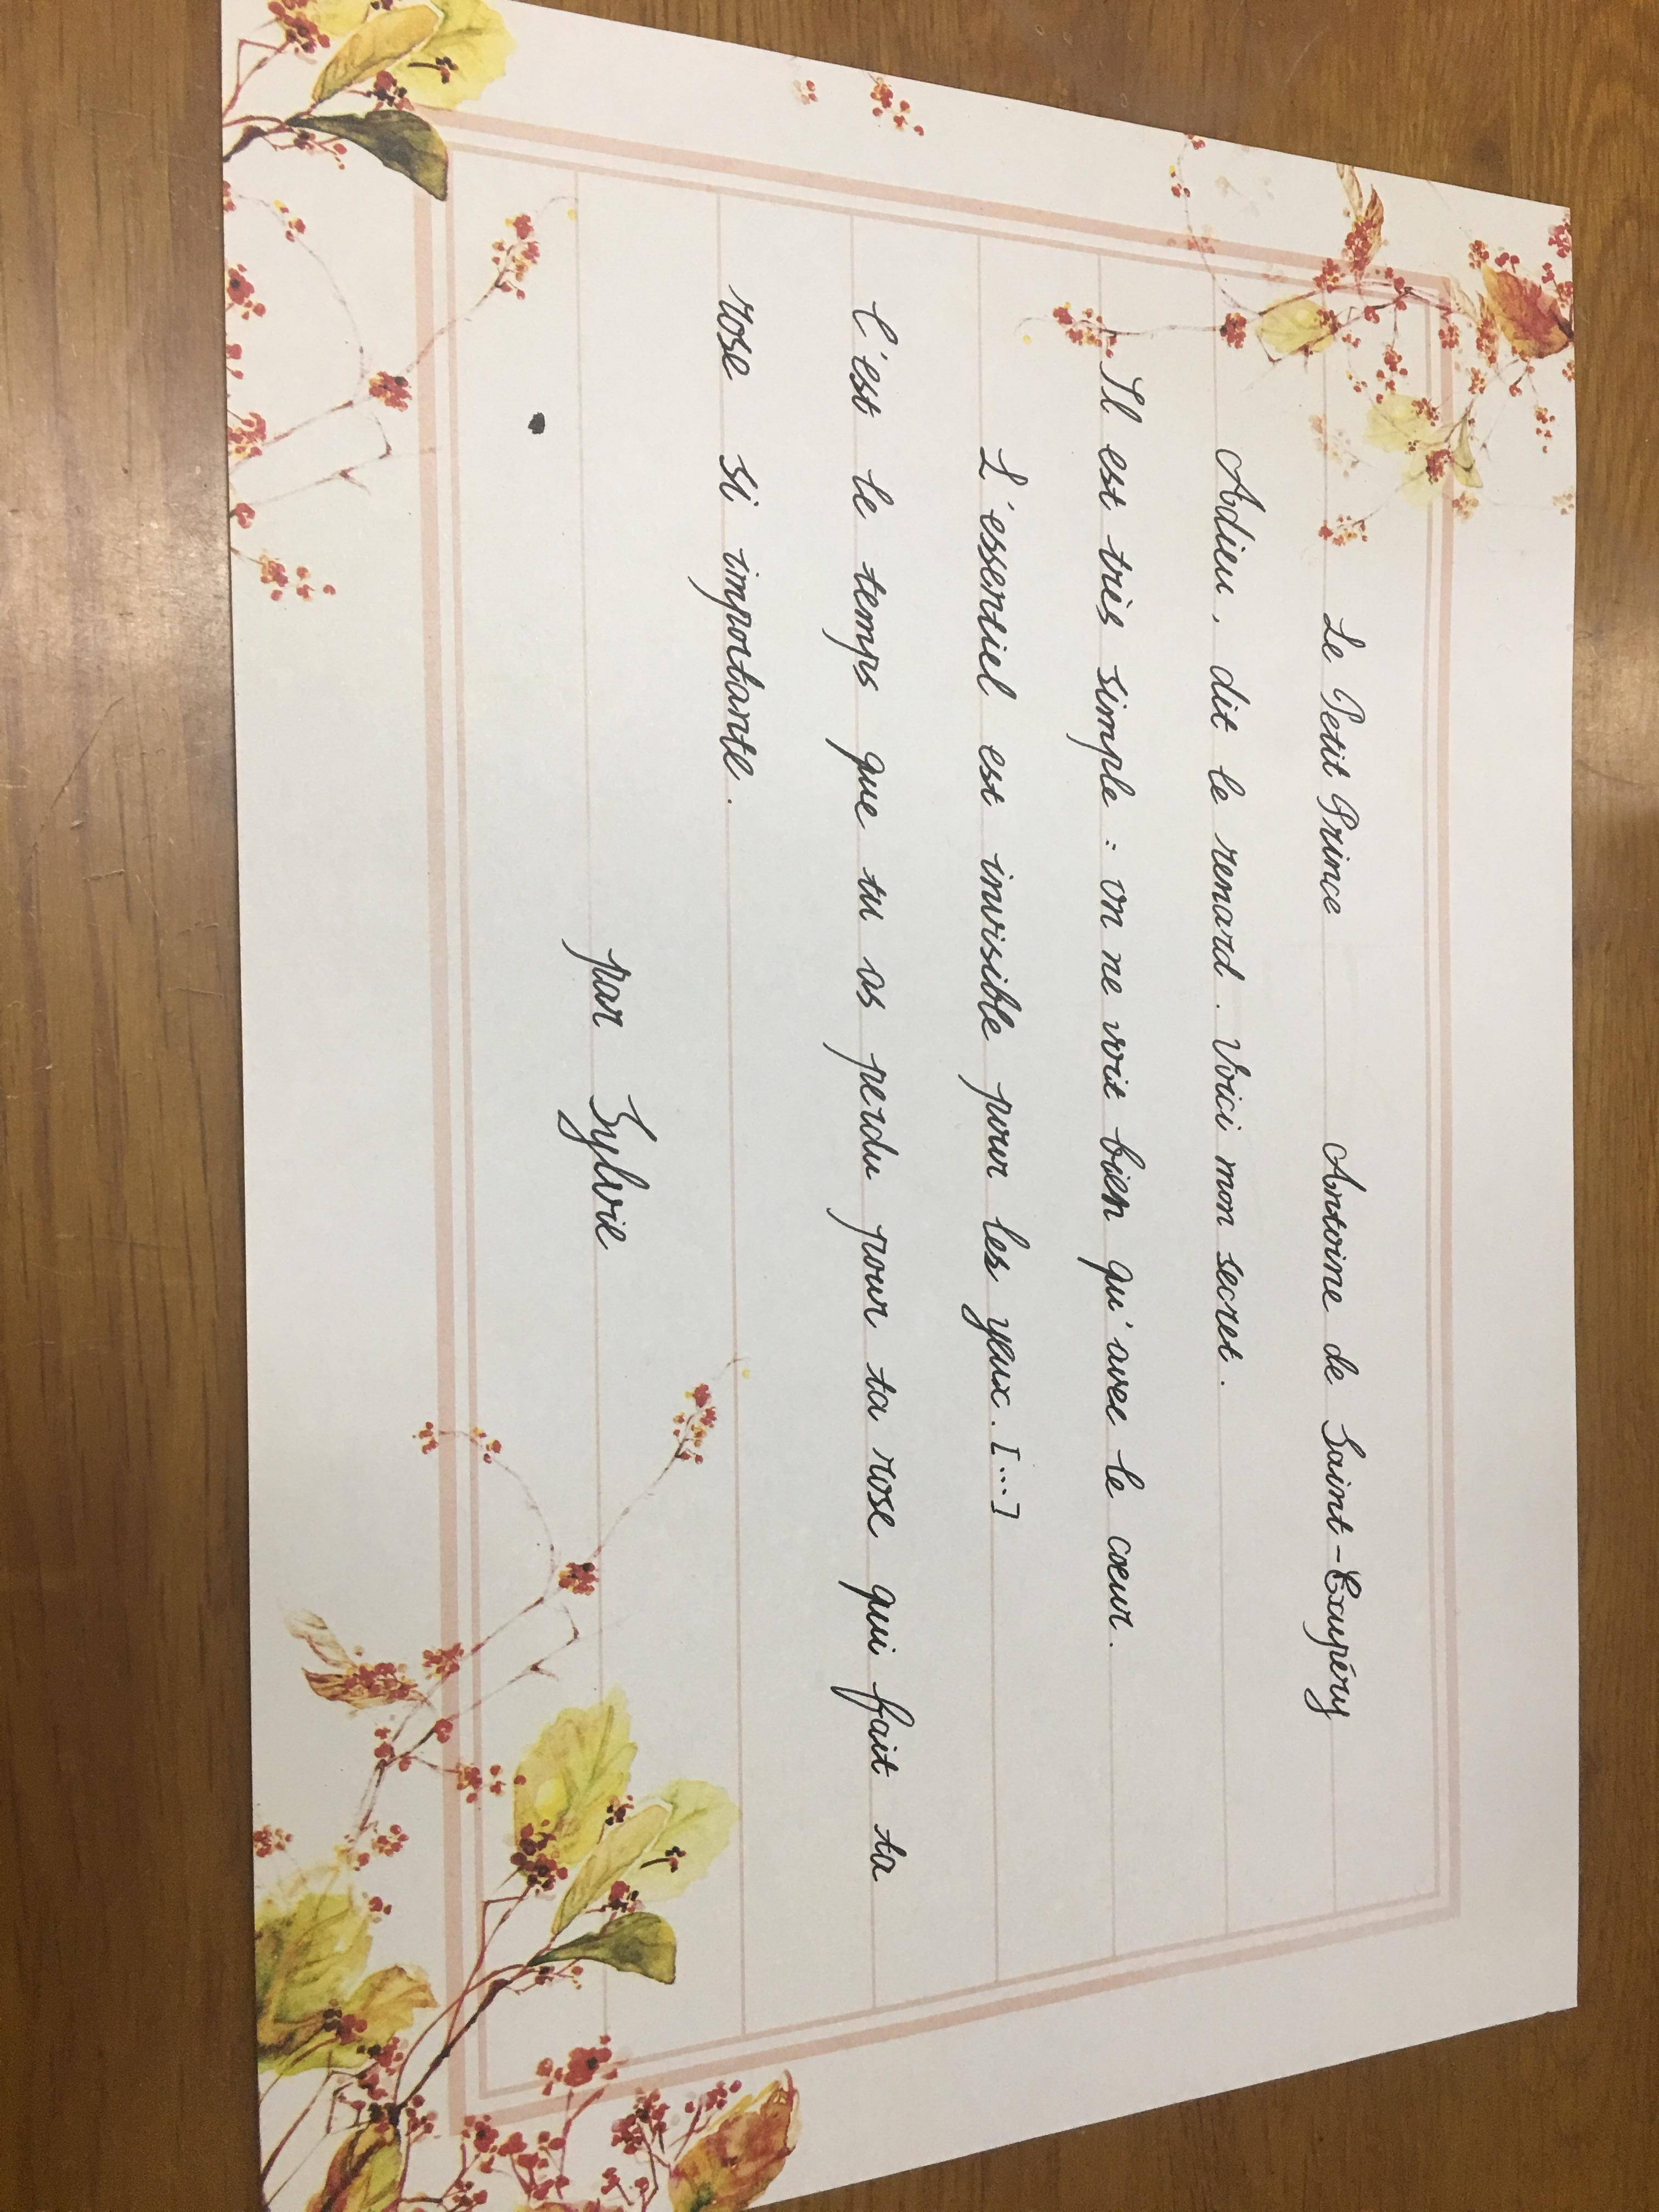 Le Petit Prince Antoine de Saint-Exupéry
Adieu, dit le renard. Voici mon secret.
Il est très simple : on ne voit bien qu'avec le cœur.
L'essentiel est invisible pour les yeux. [...]
C'est le temps que tu as perdu pour ta rose qui fait ta
rose si importante.
par Sylvie